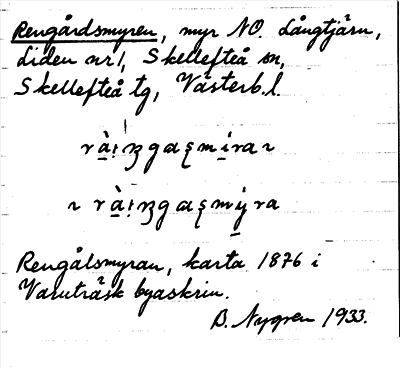 Rengårdsmyren, myr NO. Långtjärn,
Liden nr 1, Skellefteå sn,
Skellefteå tg, Västerb. l.
Rengålsmyran, karta 1876 i
Varuträsk byaskrin.
B. Nygren 1933.